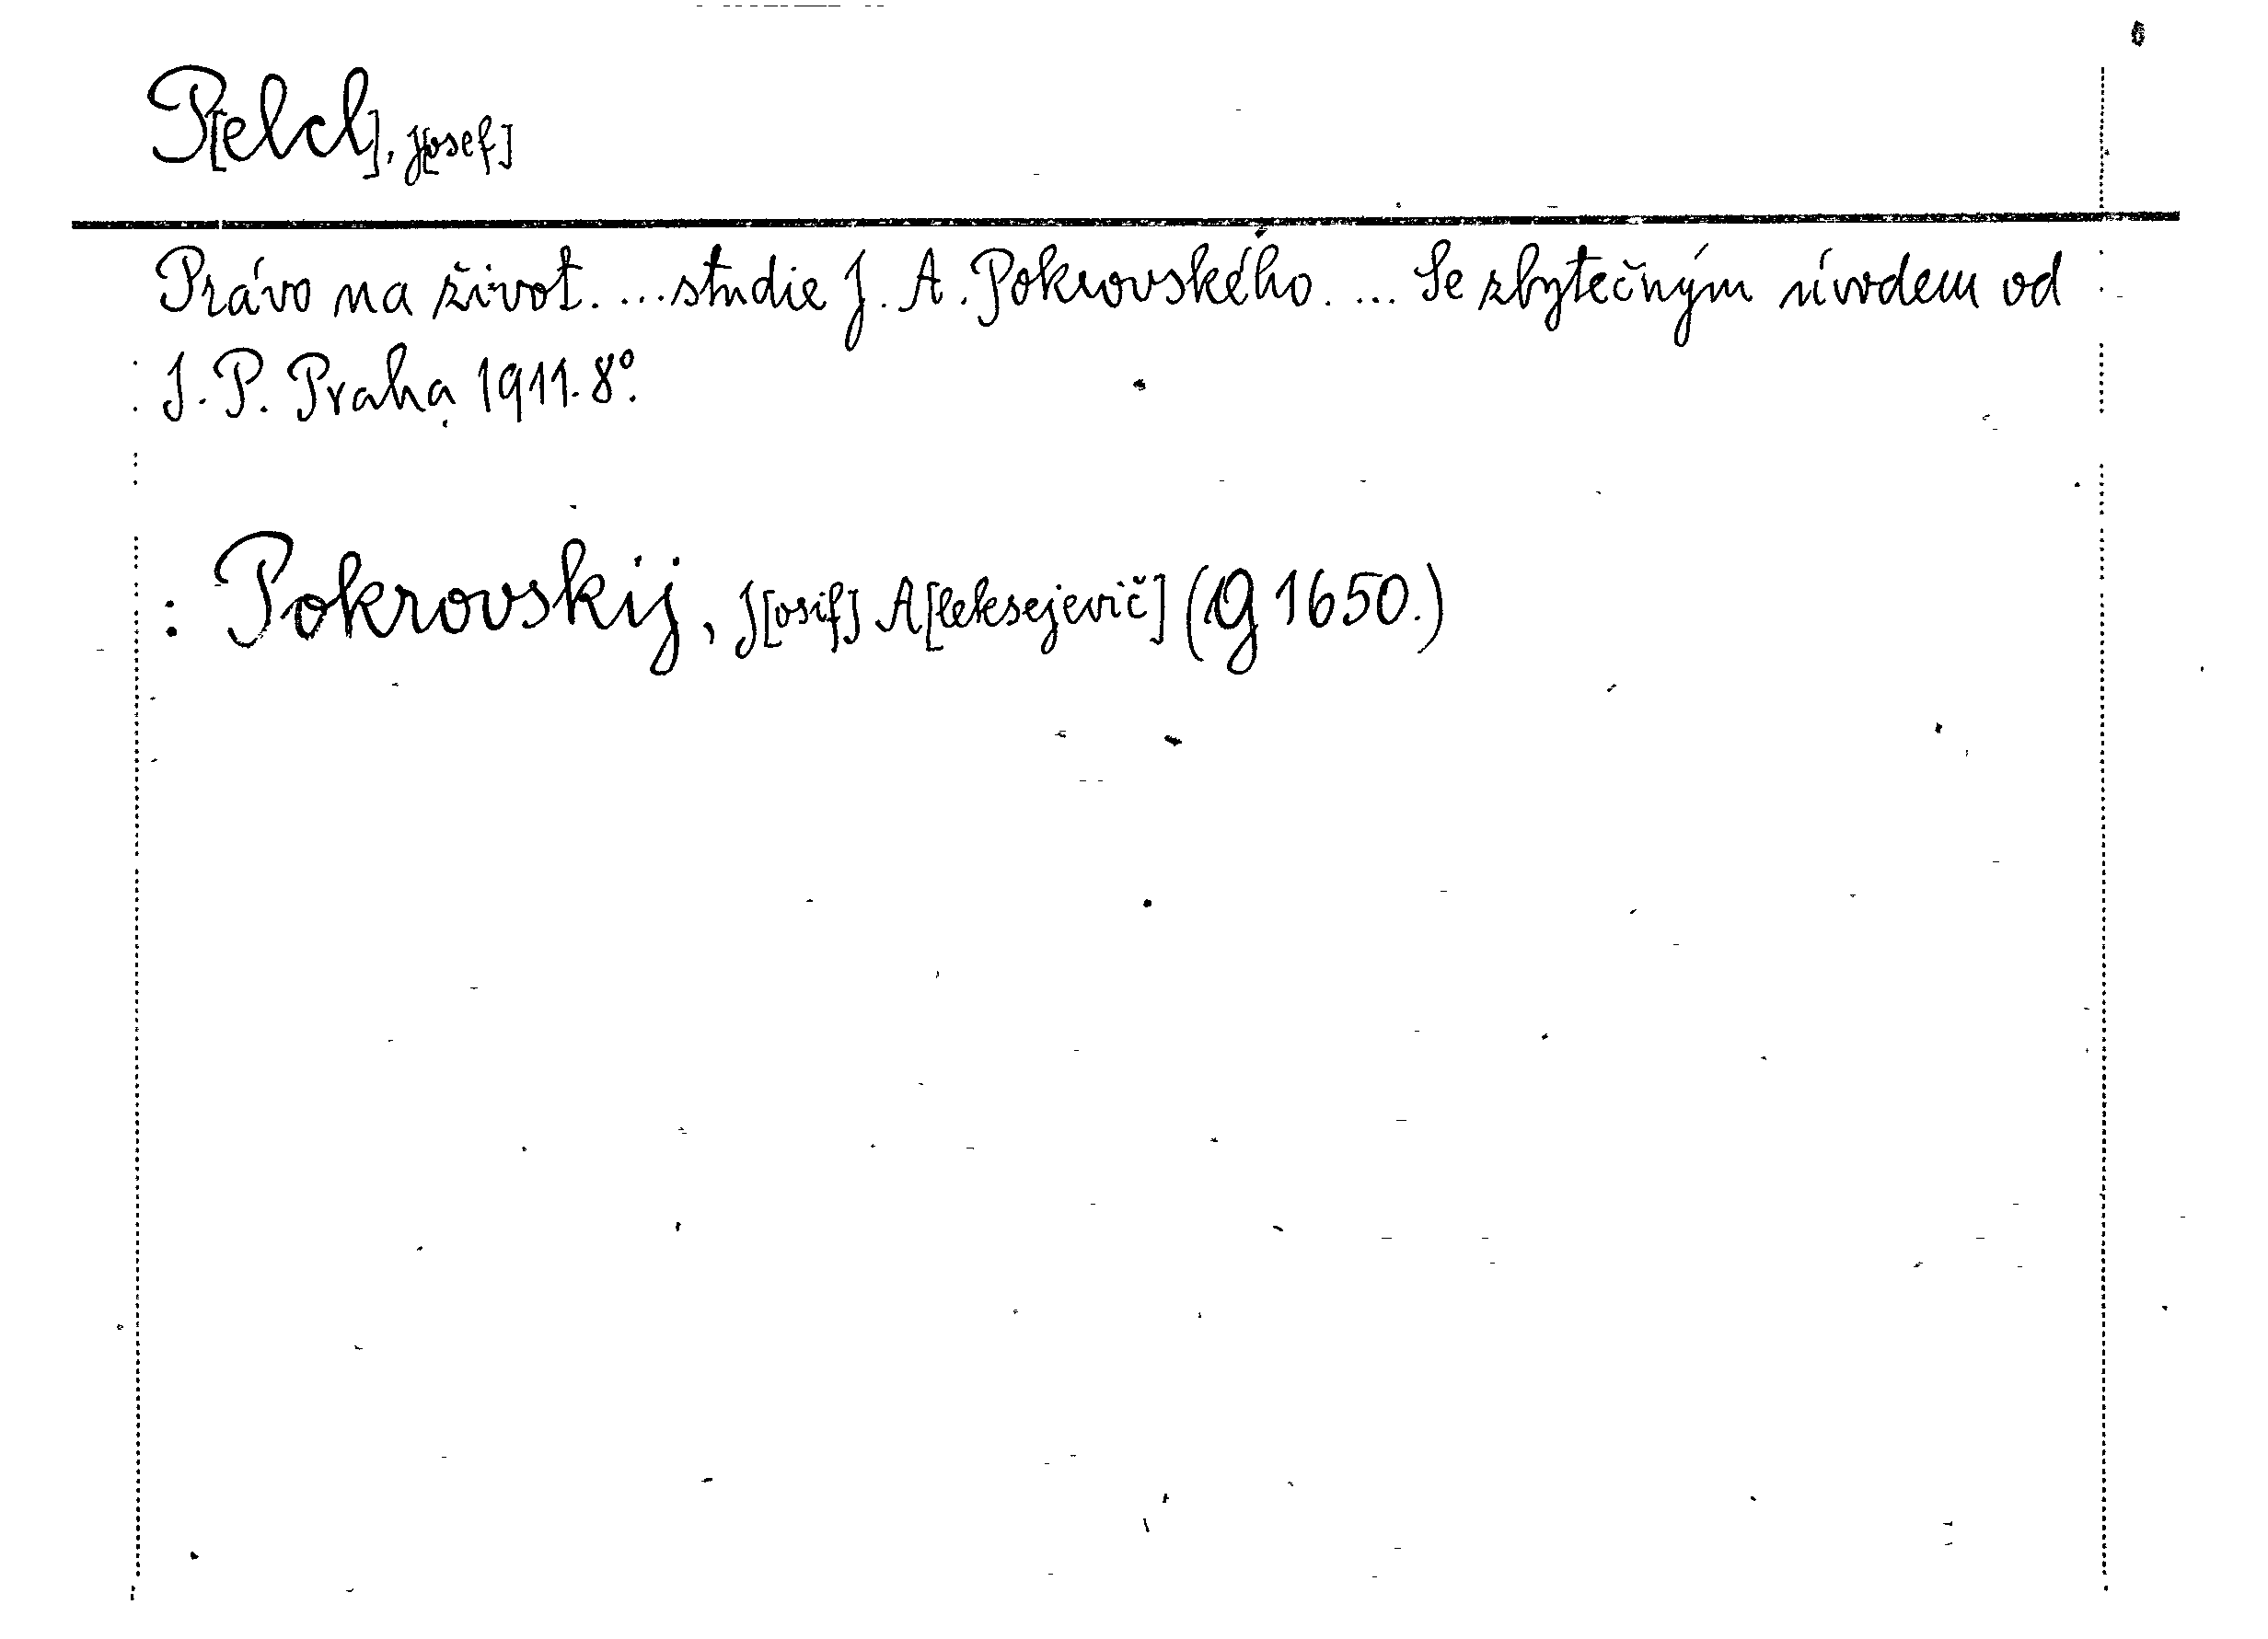 P[elcl], J[osef]
Právo na život. ...studie J. A. Pokrovského. ... Se zbytečným úvodem od
J. P. Praha 1911. 8°.
: Pokrovskij, J[osif] A[leksejevič] (G 1650.)